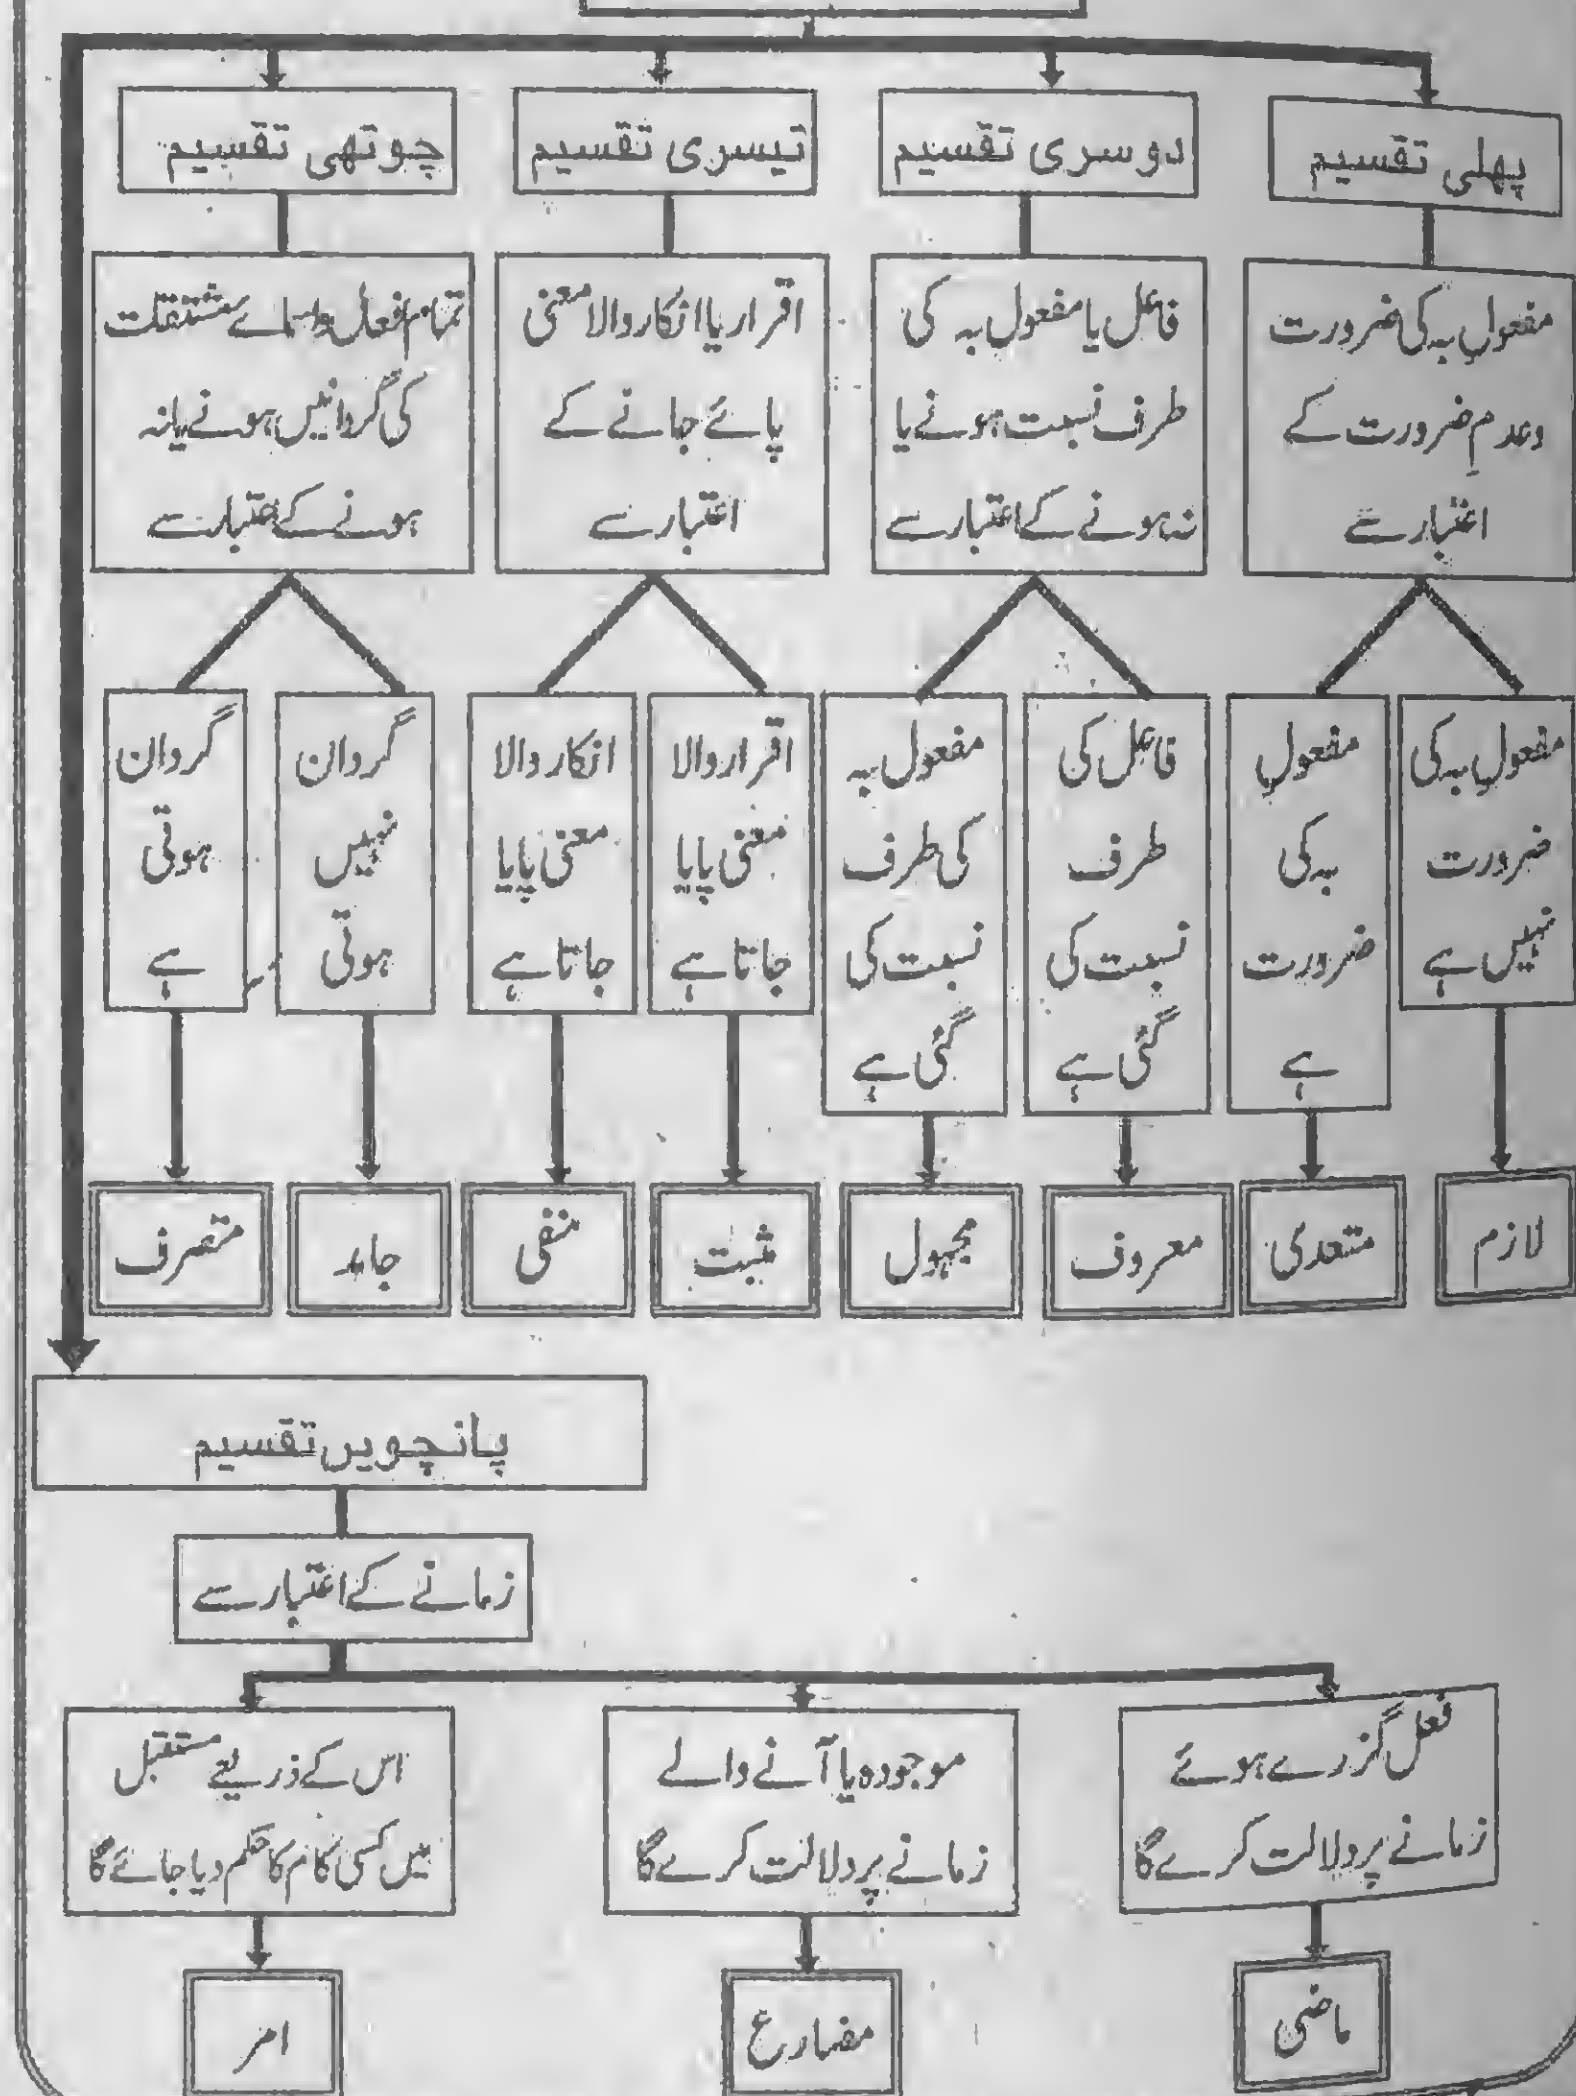 پہلی تقسیم
دوسری تقسیم
تیسری تقسیم
چوتھی تقسیم
مفعول بہ کی ضرورت
وعدمِ ضرورت کے
اعتبار سے
فاعل یا مفعول بہ کی
طرف نسبت ہونے یا
نہ ہونے کے اعتبار سے
اقرار یا انکار والا معنی
پائے جانے کے
اعتبار سے
تمام افعال واسمائے مشتقات
کی گردانیں ہونے یا نہ
ہونے کے اعتبار سے
مفعولِ بہ کی
ضرورت
نہیں ہے
مفعولِ
بہ کی
ضرورت
ہے
فاعل کی
طرف
نسبت کی
گئی ہے
مفعول بہ
کی طرف
نسبت کی
گئی ہے
اقرار والا
معنی پایا
جاتا ہے
انکار والا
معنی پایا
جاتا ہے
گردان
نہیں
ہوتی
گردان
ہوتی
ہے
لازم
متعدی
معروف
مجہول
مثبت
منفی
جامد
متصرف
پانچویں تقسیم
زمانے کے اعتبار سے
فعل گزرے ہوئے
زمانے پر دلالت کرے گا
موجودہ یا آنے والے
زمانے پر دلالت کرے گا
اس کے ذریعے مستقبل
میں کسی کام کا حکم دیا جائے گا
ماضی
مضارع
امر